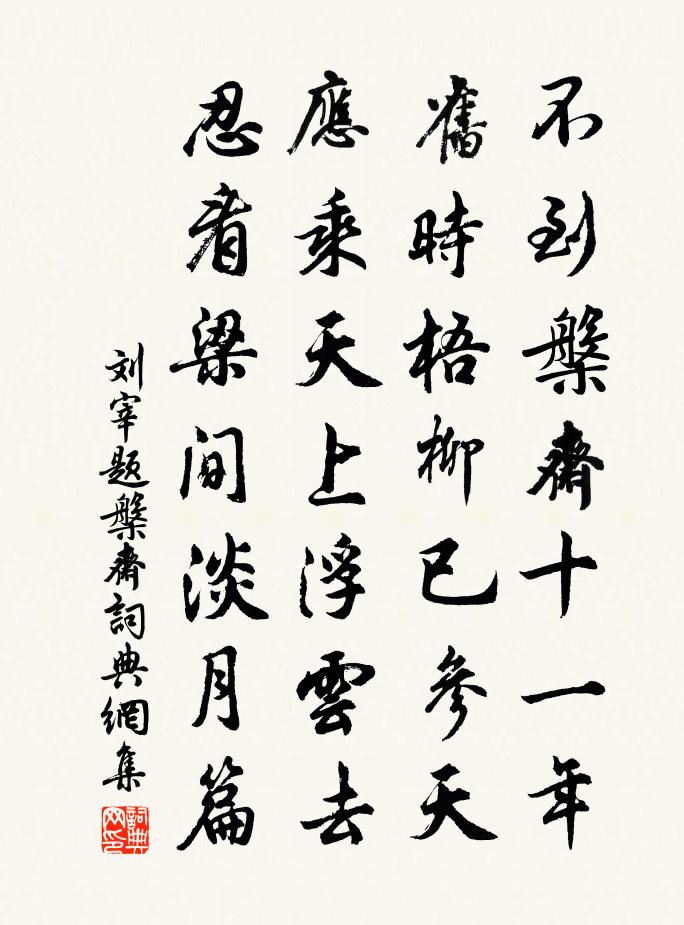 不到槃齋十一年
舊時梧柳已參天
應乘天上浮雲去
忍看梁間淡月篇
刘宰题槃齋詞典網集
詞典网印